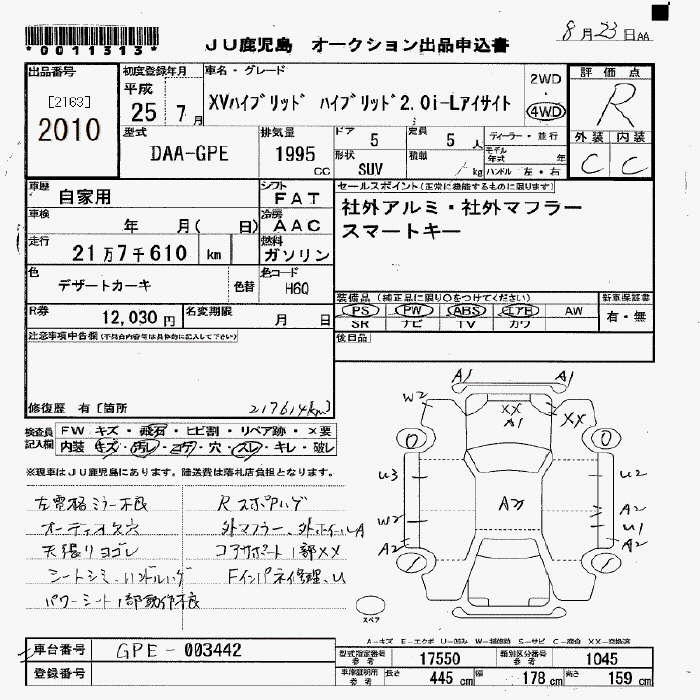 *0011313*
JU鹿児島 オークション出品申込書
8月23日AA
出品番号
[2163]
2010
初度登録年月
平成
25 7月
車名・グレード
XVハイブリッド ハイブリッド2.0i-Lアイサイト
2WD
4WD
評価点
R
外装 内装
C C
型式
DAA-GPE
排気量
1995
CC
ドア 5
定員 5人
形状 SUV
積載 kg
ディーラー・並行
モデル年式 年
ハンドル 左・右
車歴
自家用
シフト
FAT
セールスポイント(正常に機能するものに限ります)
社外アルミ・社外マフラー
スマートキー
車検 年 月( 日)
冷房
AAC
走行
21万7千610 km
燃料
ガソリン
色
デザートカーキ
色替
色コード
H6Q
装備品(純正品に限り○をつけてください)
PS PW ABS エアB AW
SR ナビ TV カワ
新車保証書
有・無
R券
12,030円
名変期限 月 日
後日品
注意事項申告欄(不具合内容は具体的に記入して下さい)
修復歴 有[箇所
217614km]
検査員
記入欄
FW キズ・飛石・ヒビ割・リペア跡・×要
内装 キズ・汚レ・コゲ・穴・スレ・キレ・破レ
※現車はJU鹿児島にあります。陸送費は落札店負担となります。
左電格ミラー不良
オーディオ欠穴
天張りヨゴレ
シートシミ、ハンドルハゲ
パワーシート1部動作不良
Rスポアハゲ
外マフラー、外ホイールA
コアサポート1部XX
Fインパネ修理、U
A1 A1
W2
XX
A1
XX
0 0
U3
U2
A2
A2
W2
U1
A2
A2
スペア
A-キズ E-エクボ U-凹み W-補修跡 S-サビ C-腐食 XX-交換済
車台番号
GPE-003442
登録番号
型式指定番号
参考
17550
類別区分番号
参考
1045
車庫証明用
参考
長さ 445cm
幅 178cm
高さ 159cm